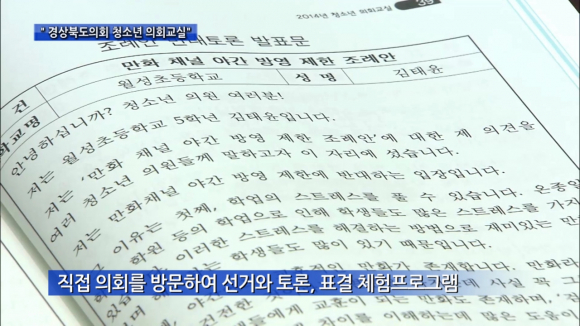 " 경상북도의회 청소년 의회교실"
2014년 청소년 의회교실
39
조례안 찬반토론 발표문
건
만화 채널 야간 방영 제한 조례안
학교명
월성초등학교
성 명
김태윤
안녕하십니까? 청소년 의원 여러분!
저는 월성초등학교 5학년 김태윤입니다.
저는 '만화 채널 야간 방영 제한 조례안'에 대한 제 의견을
여러 청소년 의원들께 말하고자 이 자리에 섰습니다.
저는 만화채널 야간 방영 제한에 반대하는 입장입니다.
이유는 첫째, 학업의 스트레스를 풀 수 있습니다. 온종일
학원 등의 학업으로 인해 학생들도 많은 스트레스를 가지
이러한 스트레스를 해결하는 방법으로 재미있는 만
학생들도 많이 있기 때문입니다.
직접 의회를 방문하여 선거와 토론, 표결 체험프로그램